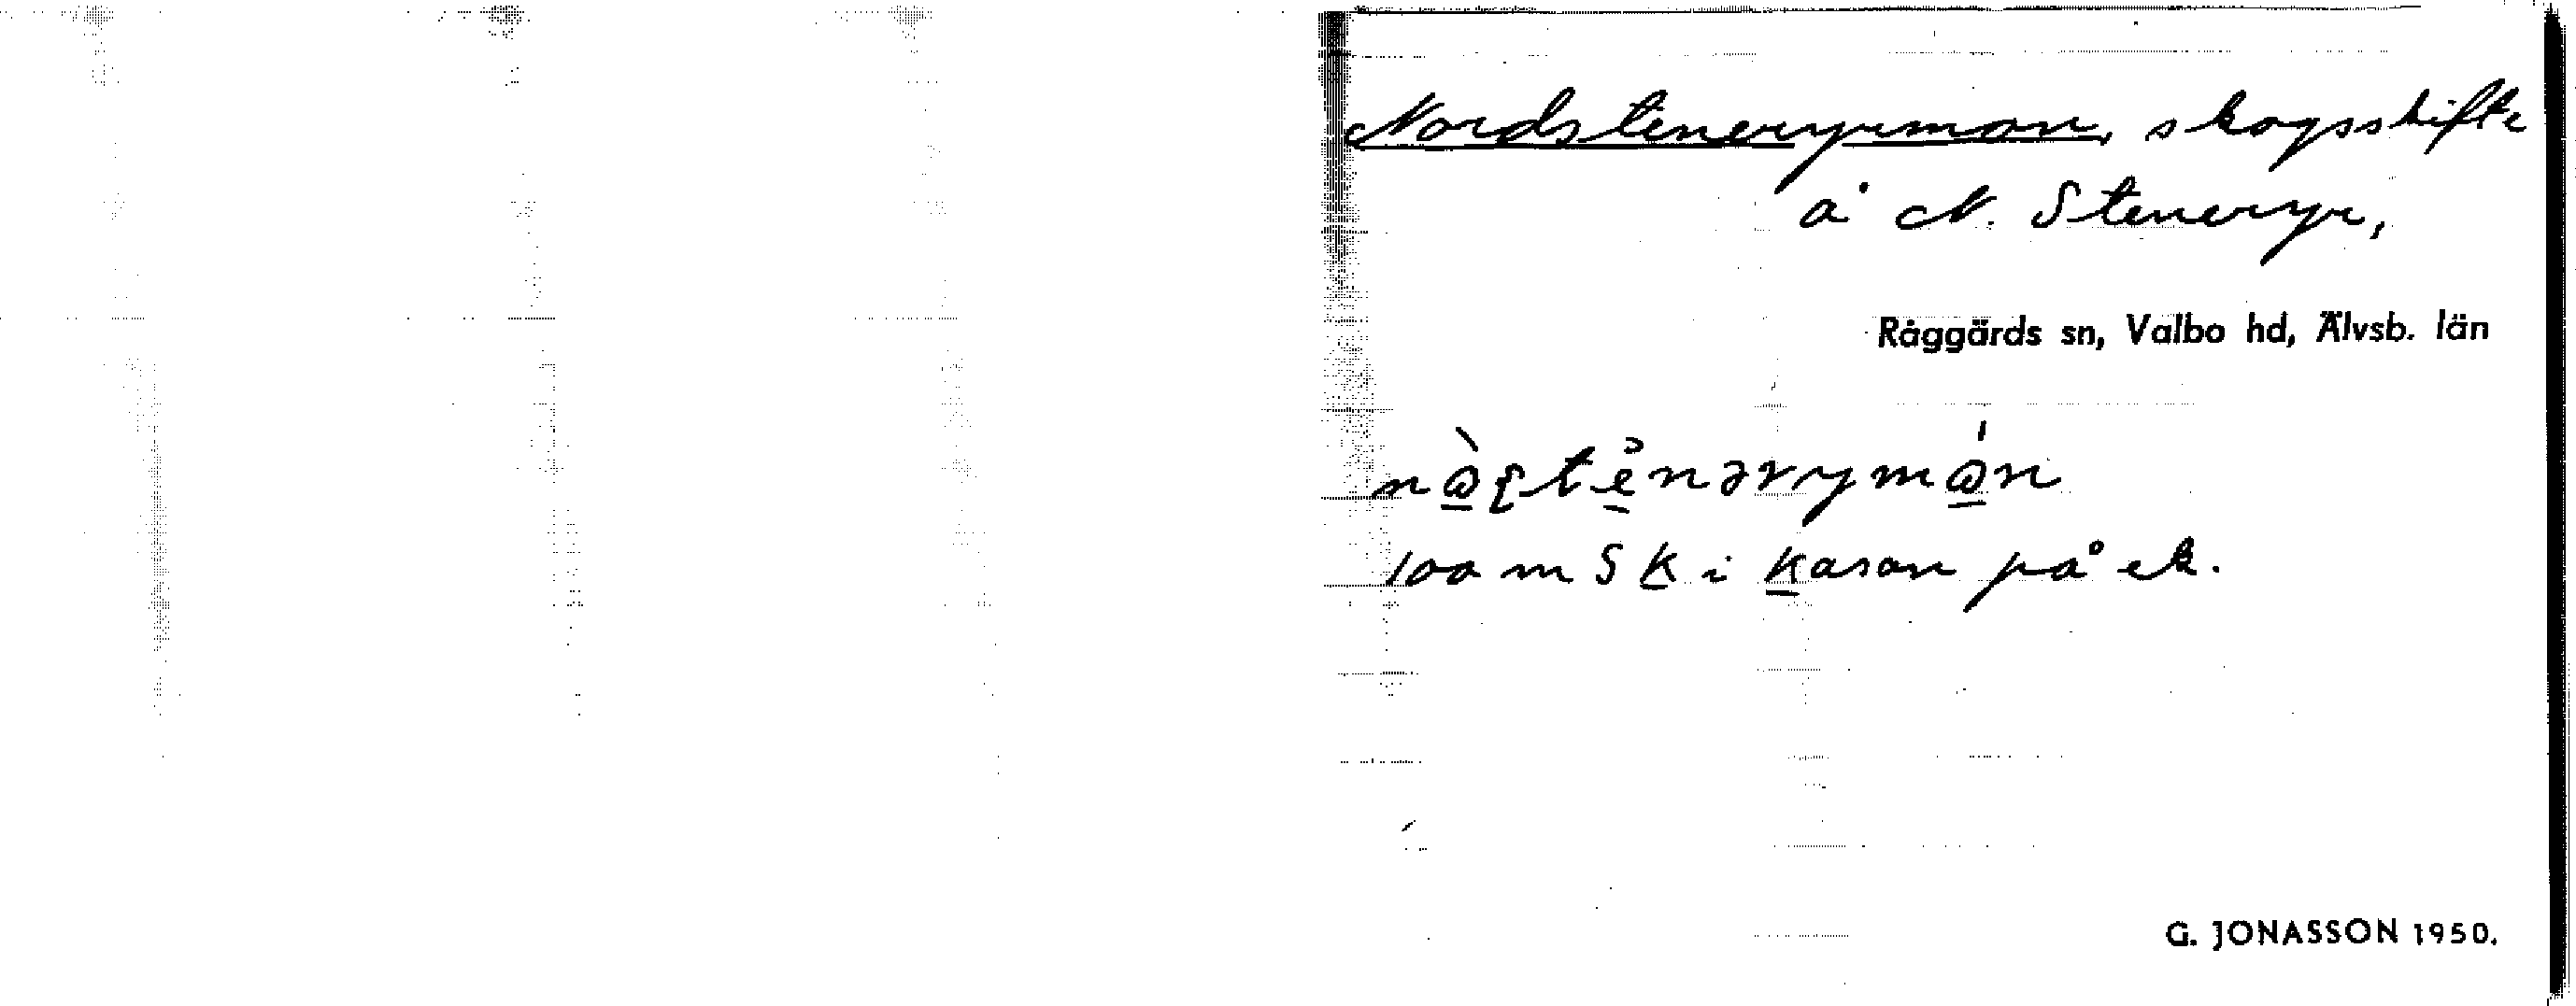 Nordsteneryrmon, skogsskifte
å N. Steneryr,
Råggärds sn, Valbo hd, Älvsb. län
100 m S K i Kasan på ek.
G. JONASSON 1950.